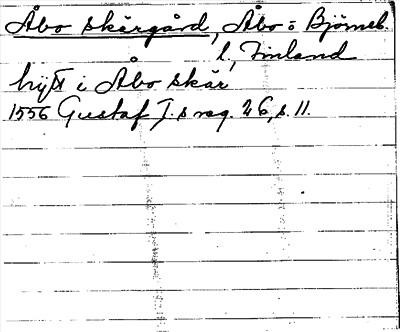 Åbo skärgård, Åbo o Björneb.
l, Finland
i Åbo skär
1556 Gustaf I.s reg. 26, s. 11.